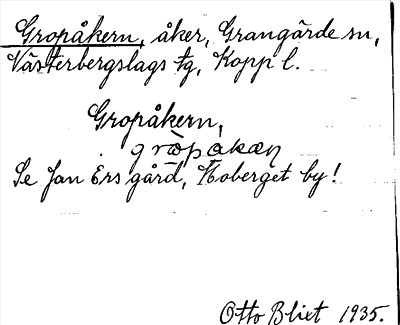 Gropåkern, åker, Grangärde sn,
Västerbergslags tg, Kopp l.
Gropåkern,
Se Jan Ers gård, Noberget by!
Otto Blixt 1935.